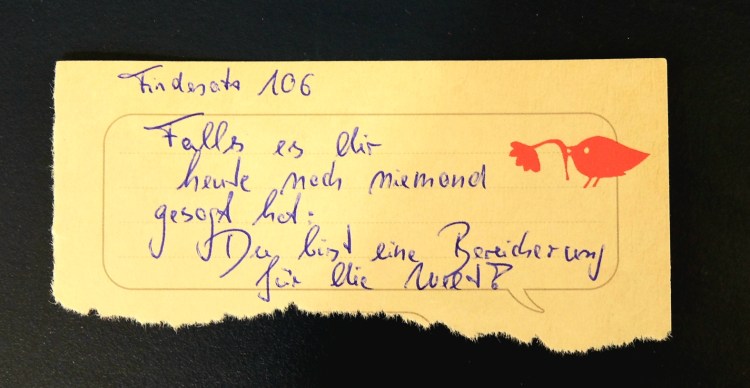 Findesatz 106
Falls es dir
heute noch niemand
gesagt hat:
Du bist eine Bereicherung
für die Welt!